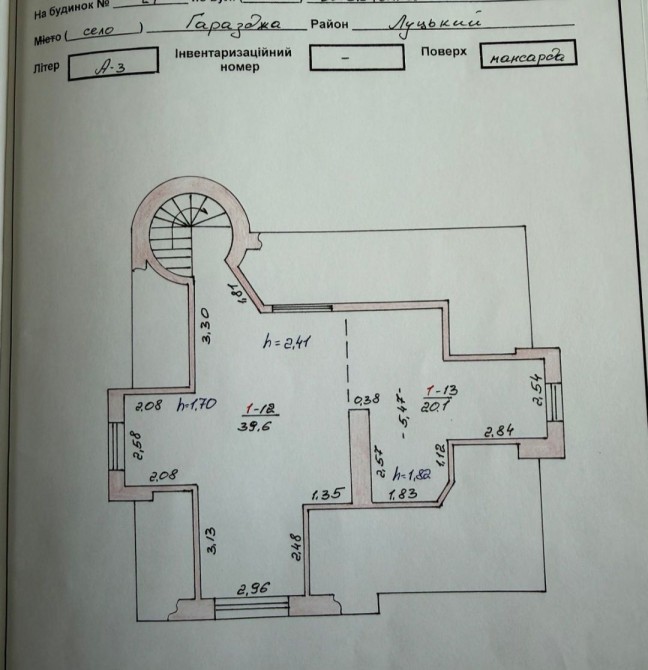 На будинок №
Місто ( село ) Гаразджа Район Луцький
Літер А-3 Інвентаризаційний номер – Поверх мансарда
1,81
3,30
h=2,41
2,08 h=1,70
1-12
39,6
0,38
-5,47-
1-13
20,1
2,54
2,58
2,84
2,57
1,12
2,08
h=1,82
1,35
1,83
3,13
2,48
2,96